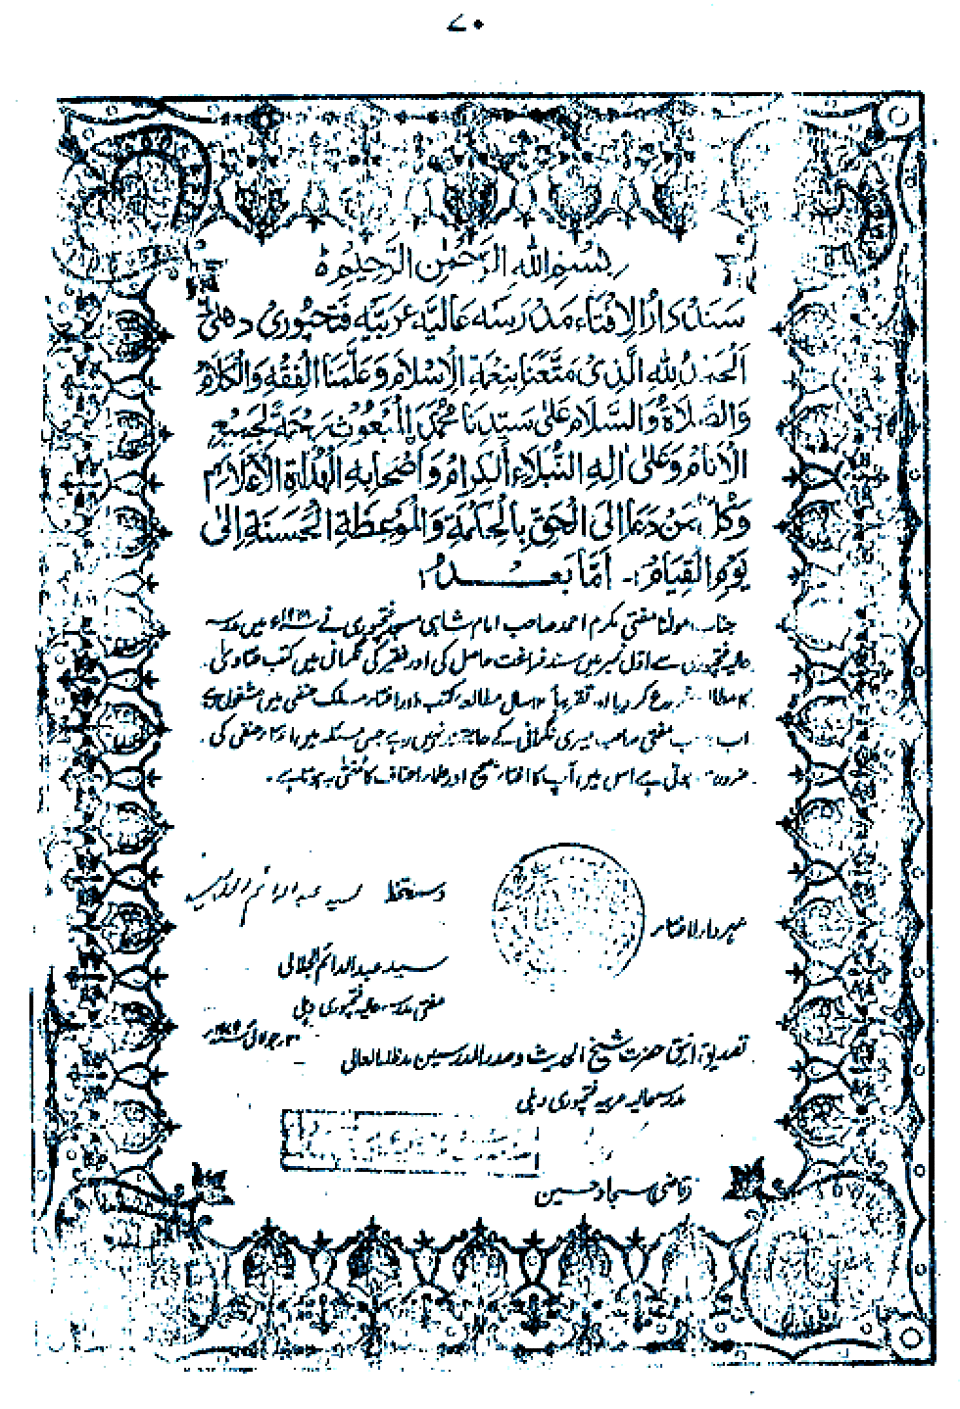 ۷۰
بِسْمِ اللهِ الرَّحْمٰنِ الرَّحِيْمِ
سَنَدُ دَارُ الْاِفْتَاء مَدْرَسَه عَالِيَه عَرَبِيَّه فَتْحپُوْرِیْ دهلی
اَلْحَمْدُ لِلّٰهِ الَّذِیْ مَتَّعَنَا بِنِعْمَةِ الْاِسْلَامِ وَعَلَّمَنَا الْفِقْهَ وَالْكَلَامَ
وَالصَّلَاةُ وَالسَّلَامُ عَلٰی سَيِّدِنَا مُحَمَّدٍ الْمَبْعُوْثِ رَحْمَةً لِجَمِيْعِ
الْاَنَامِ وَعَلٰی اٰلِهِ النُّبَلَاءِ الْكِرَامِ وَاَصْحَابِهِ الْهُدَاةِ الْاَعْلَامِ
وَكُلِّ مَنْ دَعَا اِلَی الْحَقِّ بِالْحِكْمَةِ وَالْمَوْعِظَةِ الْحَسَنَةِ اِلٰی
يَوْمِ الْقِيَامِ :۔ اَمَّا بَعْدُ :
جناب مولانا مفتی مکرم احمد صاحب امام شاہی مسجد فتحپوری نے میں مدرسہ
عالیہ فتحپوری سے اول نمبر میں سند فراغت حاصل کی اور فقیر کی نگرانی میں کتب فتاویٰ
کا مطالعہ شروع کر دیا اور تقریباً سال مطالعہ کتب اور افتاء مسلک حنفی میں مشغول رہے
اب جناب مفتی صاحب میری نگرانی کے حاجتمند نہیں رہے جس مسئلہ میں افتاء حنفی کی
ضرورت ہوتی ہے اس میں آپ کا افتاء صحیح اور علماء احناف کا مفتیٰ بہ ہوتا ہے۔
دستخط سید عبد الدائم الجلالی
مہر دارالافتاء
سید عبد الدائم الجلالی
مفتی مدرسہ عالیہ فتحپوری دہلی
جولائی
تصدیق از حضرت شیخ الحدیث و صدر المدرسین مدظلہ العالی
مدرسہ عالیہ عربیہ فتحپوری دہلی
قاضی سجاد حسین